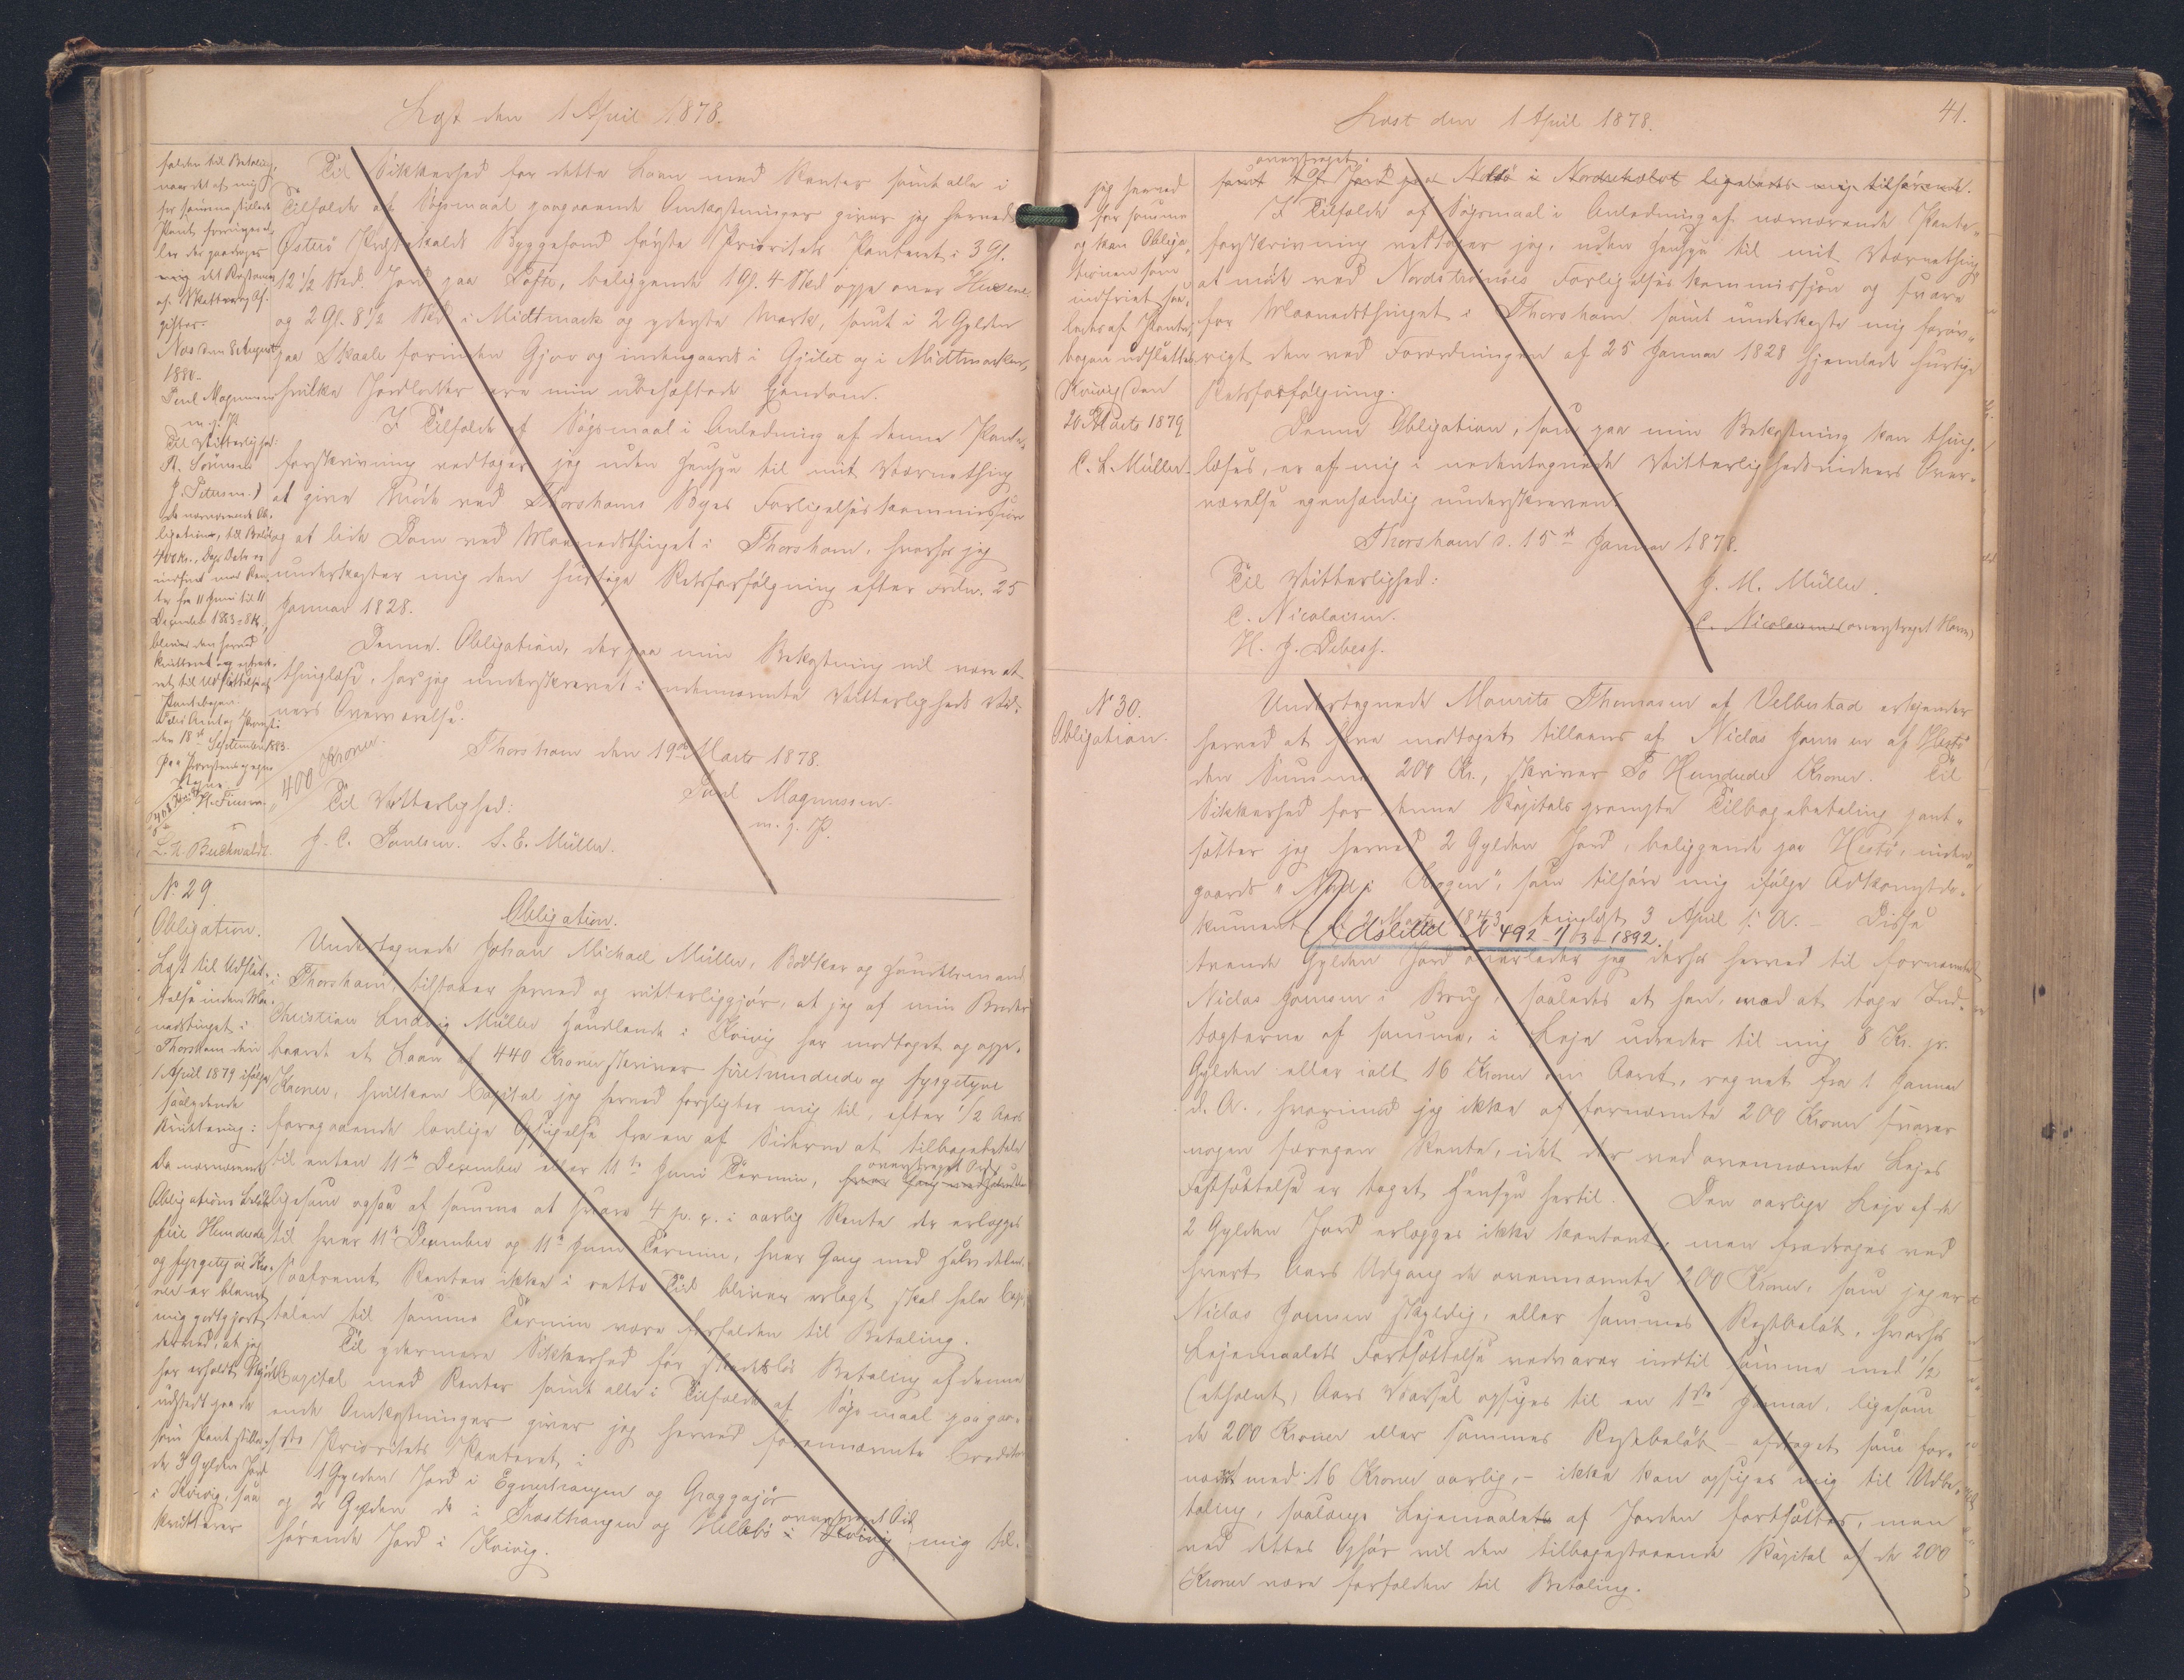 Læst den 1 April 1878.
falden til Betaling,
naar det af mig
for samme stillede
Pant forringes el-
ler der paadrages
mig det Restance
af Skatter og Af-
gifter.
Næs den 8 August
1880
Poul Magnussen
m. f. P.
Til Vitterlighed:
R. Sörensen
J. Petersen.)
Da nærværende Ob-
ligation, til Beløb
400 Kr., Dags Dato er
indfriet med Ren-
ter fra 11 Juni til 11
December 1883 = 8 Kr.,
bliver den herved
kvitteret og extrade-
ret til Udslettelse af
Pantebogen.
Færø Amt og Provsti
den 18de September 1883.
Paa Provstens Vegne
H. Finsen.
L. A. Buchwaldt.
Til Sikkerhed for dette Laan med Renter samt alle i
Tilfælde af Søgsmaal paagaaende Omkostninger giver jeg herved
Østerø Præstekalds Byggefond første Prioritets Panteret i 3 Gl.
12 1/2 Skd. Jord paa Tofte, beliggende 1 Gl. 4 Skd oppe over Husene
og 2 Gl. 8 1/2 Skd i Midtmark og yderste Mark, samt i 2 Gylden
paa Skaale forinden Gjov og indengaards i Gjilet og i Midtmarken,
hvilke Jordlodder ere min ubehæftede Ejendom.
I Tilfælde af Søgsmaal i Anledning af denne Pante-
forskrivning vedtager jeg uden Hensyn til mit Værnething
at give Møde ved Thorshavns Byes Forligelseskommission
og at lide Dom ved Maanedsthinget i Thorshavn, hvorfor jeg
underkaster mig den hurtige Retsforfølgning efter Frdn. 25
Januar 1828.
Denne Obligation, der paa min Bekostning vil være at
thinglæse, har jeg underskrevet i undernævnte Vitterligheds Vid-
ners Overværelse.
Thorshavn den 19de Marts 1878.
400 Kroner.
Poul Magnussen
m. f. P.
Til Vitterlighed:
J. C. Poulsen. S. E. Müller.
No 29.
Obligation.
Læst til Udslet-
telse inden Maa-
nedstinget i
Thorshavn den
1 April 1879 ifølge
saalydende
Kvittering:
Da nærværende
Obligations Beløb
fire Hundrede
og fyrgetyve Kro-
ner er blevet
mig godtgjort
derved, at jeg
har erholdt Skjøde
udstedt paa de
som Pant stillede
3 Gylden Jord
i Kvivig, saa
kvitterer
Obligation.
Undertegnede Johan Michael Müller, Bødker og Handelsmand
i Thorshavn, tilstaaer herved og vitterliggjör, at jeg af min Broder
Christian Ludvig Müller Handlende i Kvivig har modtaget og oppe-
baaret et Laan af 440 Kroner skriver firehundrede og fyrgetyve
Kroner, hvilken Capital jeg herved forpligter mig til, efter 1/2 Aars
foregaaende lovlige Opsigelse fra en af Siderne at tilbagebetale
til enten 11te December eller 11te Juni Termin,
overstreget Ord
ligesom ogsaa af samme at svare 4 p. c. i aarlig Rente der erlægges
til hver 11te December og 11te Juni Termin, hver Gang med Halvdelen.
Saafremt Renten ikke i rette Tid bliver erlagt, skal hele Capi-
talen til samme Termin være forfalden til Betaling.
Til ydermere Sikkerhed for skadesløs Betaling af denne
Capital med Renter samt alle i Tilfælde af Søgsmaal paagaa-
ende Omkostninger giver jeg herved fornævnte Creditor
første Prioritets Panteret i
1 Gylden Jord i Egnertrangen og Graggajör
og 2 Gylden do i Trosthangen og Hellebö i Kvivig mig til-
hørende Jord i Kvivig.
Læst den 1 April 1878.
41.
jeg herved
for samme
og kan Obliga-
tionen som
indfriet saa-
ledes af Pante-
bogen udslettes
Kvivig den
20 Marts 1879
C. L. Müller
overstreget.
samt 1 Gl. Jord paa Nolsö i Nordrehalvt ligeledes mig tilhørende.
I Tilfælde af Søgsmaal i Anledning af nærværende Pante-
forskrivning vedtager jeg, uden Hensyn til mit Værnething
at møde ved Nordstrømøes Forligelseskommission og svare
for Maanedsthinget i Thorshavn samt underkaste mig forøv-
rigt den ved Forordningen af 25 Januar 1828 hjemlede hurtige
Retsforfølgning.
Denne Obligation, som paa min Bekostning kan thing-
læses, er af mig i nedentegnede Vitterlighedsvidners Over-
værelse egenhændig underskreven.
Thorshavn d. 15de Januar 1878.
Til Vitterlighed:
J. M. Müller.
C. Nicolaisen.
C. Nicolaisen (overstreget Navn)
H. J. Debess.
No 30.
Obligation.
Undertegnede Maurits Thomasen af Velbestad erkjender
herved at have modtaget tillaans af Niclas Jonsen af Hestö
den Summa 200 Kr., skriver To Hundrede Kroner. Til
Sikkerhed for denne Kapitals prompte Tilbagebetaling pant-
sætter jeg herved 2 Gylden Jord, beliggende paa Hestö, inden-
gaards "Nord i Krogen", som tilhøre mig ifølge Adkomstdo-
kument d. 2 Marts 1843, tinglæst 3 April s. A. – Disse
Udslettet No 492 – 1/3 – 1892.
tvende Gylden Jord overlader jeg derfor herved til fornævnte
Niclas Jonsen i Brug, saaledes at han, mod at tage Ind-
tægterne af samme, i Leje udreder til mig 8 Kr. pr.
Gylden eller ialt 16 Kroner om Aaret, regnet fra 1 Januar
d. A., hvorimod jeg ikke af fornævnte 200 Kroner svarer
nogen særegen Rente, idet der ved ovennævnte Lejes
Fastsættelse er taget Hensyn hertil. Den aarlige Leje af de
2 Gylden Jord erlægges ikke kontant, men fradrages ved
hvert Aars Udgang de ovennævnte 200 Kroner, som jeg er
Niclas Jonsen skyldig, eller sammes Restbeløb, hvorfor
Lejemaalets Fortsættelse vedvarer indtil samme med 1/2
(et halvt) Aars Varsel opsiges til en 1ste Januar, ligesom
de 200 Kroner eller sammes Restbeløb – afdraget som for-
nævnt med 16 Kroner aarlig, – ikke kan opsiges mig til Udbe-
taling, saalænge Lejemaalet af Jorden fortsættes, men
ved dettes Ophør vil den tilbagestaaende Kapital af de 200
Kroner være forfalden til Betaling.